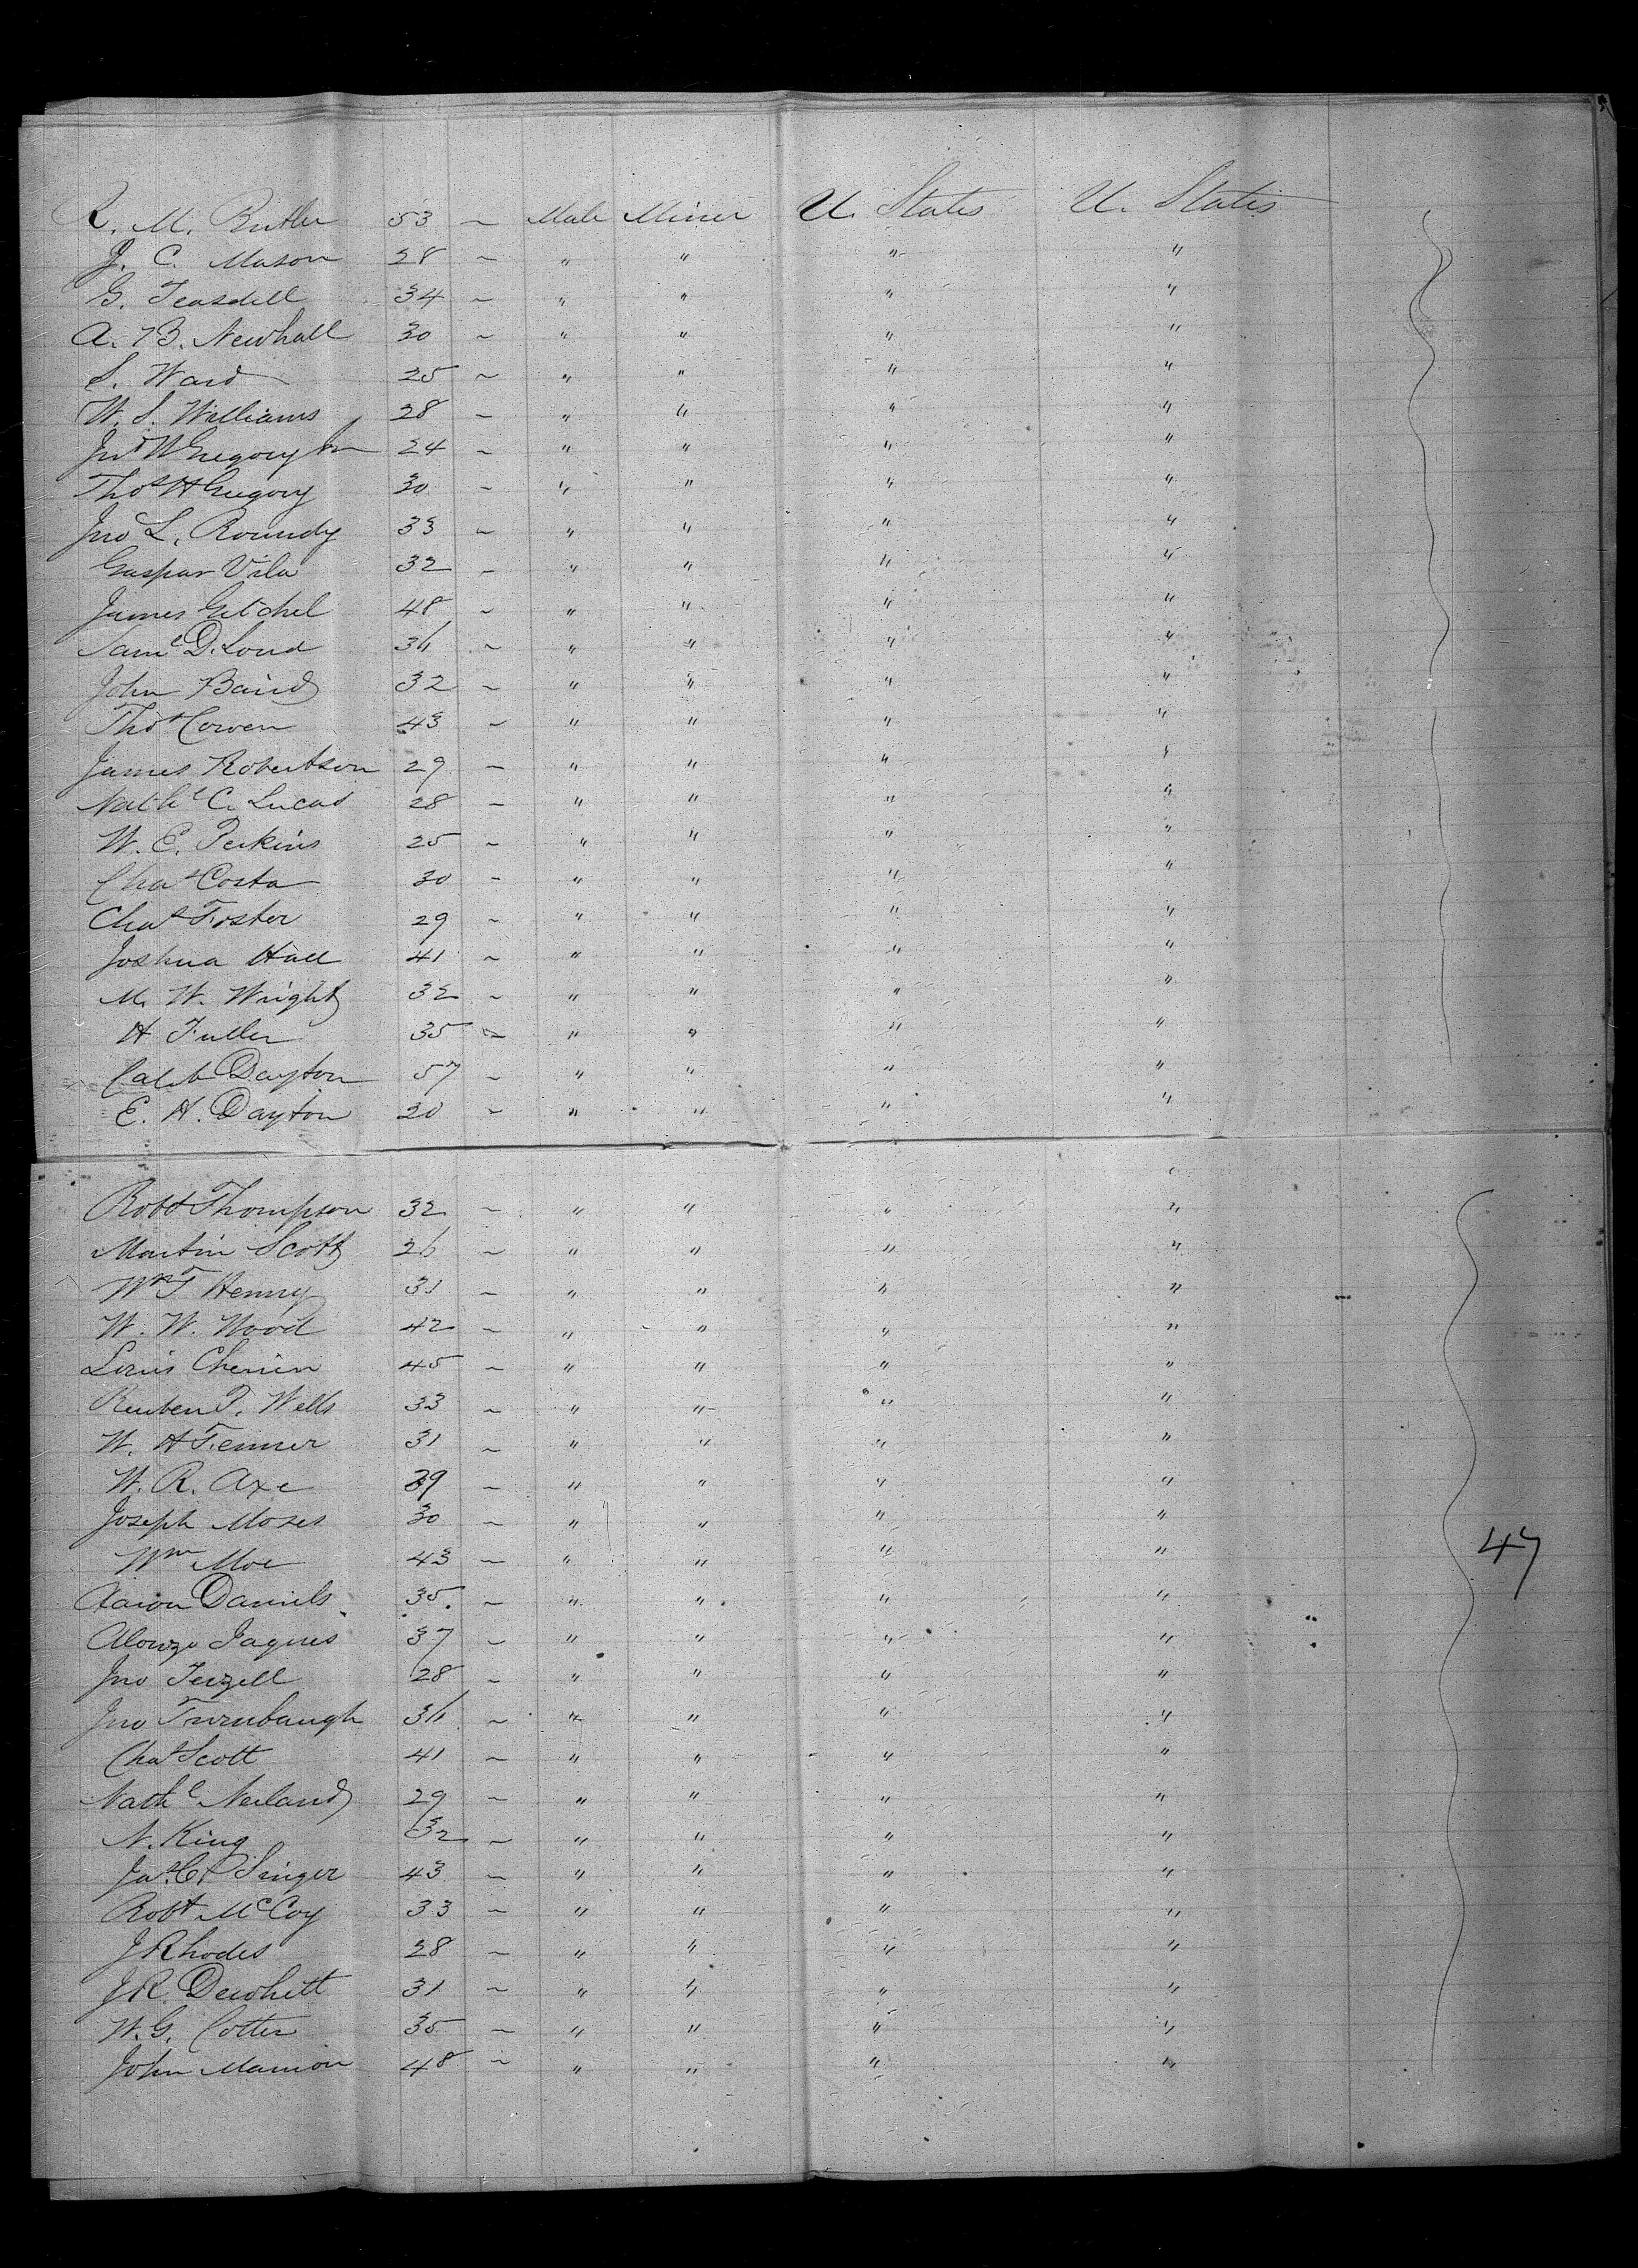 R. M. Butler 53 ~ Male Miner U. States U. States
J. C. Mason 28 ~ " " " "
G. Teasdell 34 ~ " " " "
A. B. Newhall 30 ~ " " " "
S. Ward 25 ~ " " " "
W. S. Williams 28 ~ " " " "
Jno W Gregory 24 ~ " " " "
Thos H Gregory 30 ~ " " " "
Jno L. Roundy 33 ~ " " " "
Gaspar Vila 32 ~ " " " "
James Getchel 48 ~ " " " "
Saml D. Loud 36 ~ " " " "
John Baird 32 ~ " " " "
Thos Cowen 43 ~ " " " "
James Robertson 29 ~ " " " "
Nathl C. Lucas 28 ~ " " " "
W. E. Perkins 25 ~ " " " "
Chas Costa 30 ~ " " " "
Chas Foster 29 ~ " " " "
Joshua Hall 41 ~ " " " "
M. W. Wright 32 ~ " " " "
H Fuller 35 ~ " " " "
Caleb Dayton 57 ~ " " " "
E. H. Dayton 20 ~ " " " "
Robt Thompson 32 ~ " " " "
Martin Scott 26 ~ " " " "
Wm T Henry 31 ~ " " " "
W. W. Wood 42 ~ " " " "
Louis 45 ~ " " " "
Reuben P. Wells 33 ~ " " " "
W. H Fenner 31 ~ " " " "
W. R. Axe 29 ~ " " " "
Joseph Moses 30 ~ " " " "
Wm Moe 43 ~ " " " " 47
Aaron Daniels 35. ~ " " " "
Alonzo Jaques 37 ~ " " " "
Jno 28 ~ " " " "
Jno Turnbaugh 36 ~ " " " "
Chas Scott 41 ~ " " " "
Nathl Neiland 29 ~ " " " "
N. King 32 ~ " " " "
Jas. C. Singer 43 ~ " " " "
Robt McCoy 33 ~ " " " "
J Rhodes 28 ~ " " " "
J R. Dewhitt 31 ~ " " " "
W. G. Cotter 35 ~ " " " "
John Manion 48 ~ " " " "